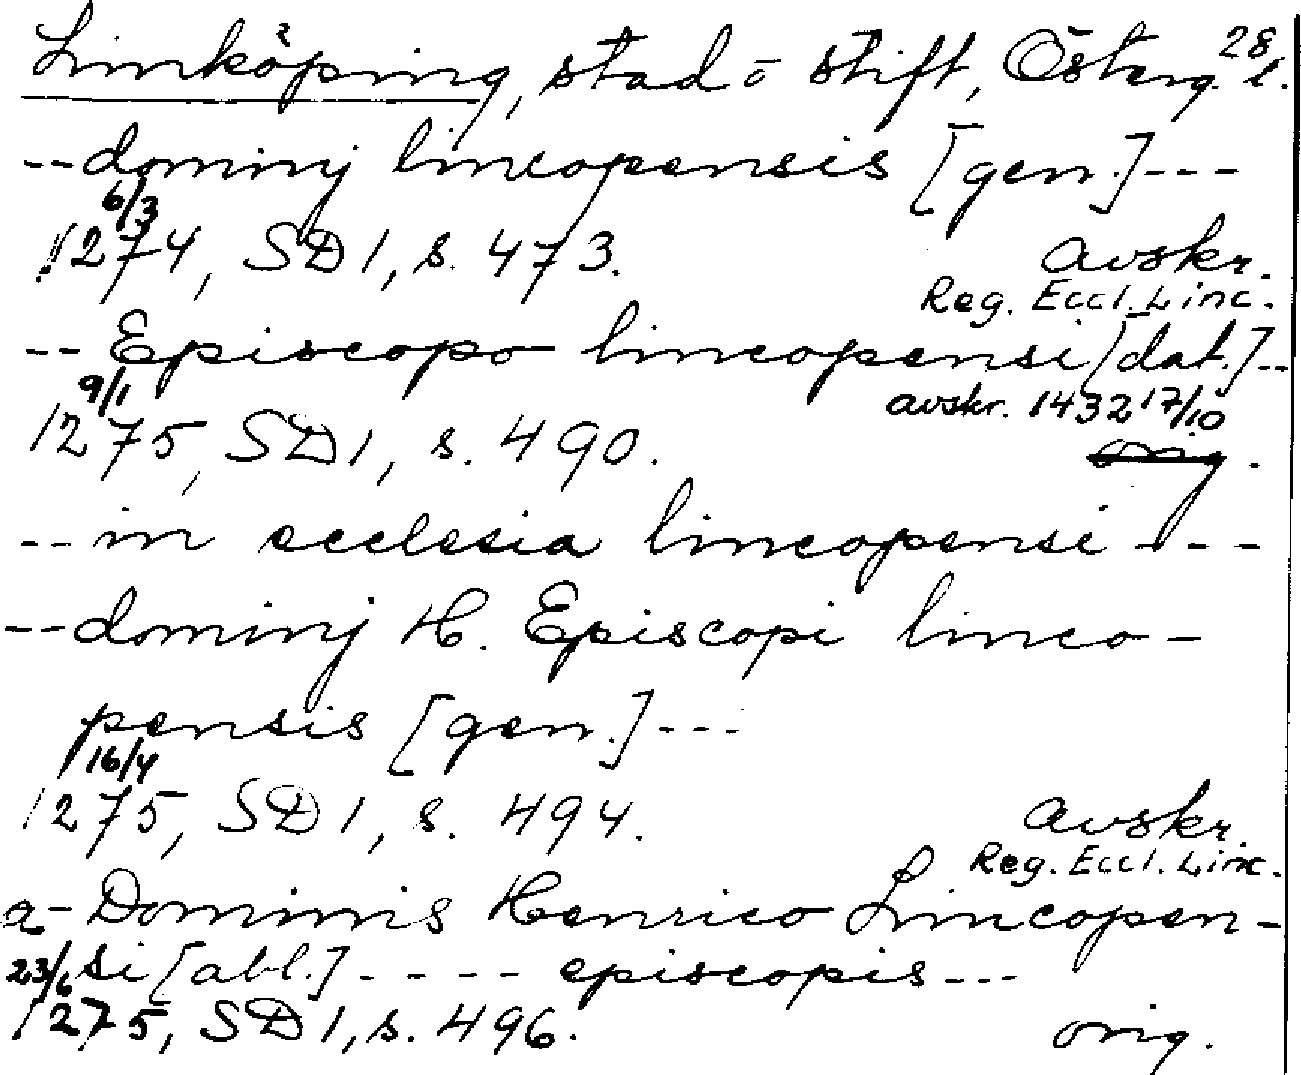 Linköping, stad o stift, Österg. 28 l.
-- dominj lincopensis [gen.] ---
6/3
1274, SD 1, s. 473. avskr.
Reg. Eccl. Linc.
-- Episcopo lincopensi [dat.] --
9/1 avskr. 1432 17/10
1275, SD 1, s. 490. orig.
-- in ecclesia lincopensi ---
-- dominj H. Episcopi linco-
pensis [gen.] ---
16/4
1275, SD 1, s. 494. avskr.
Reg. Eccl. Linc.
a - Dominis Henrico Lincopen-
23/6 si [abl.] ---- episcopis ---
1275, SD 1, s. 496. orig.